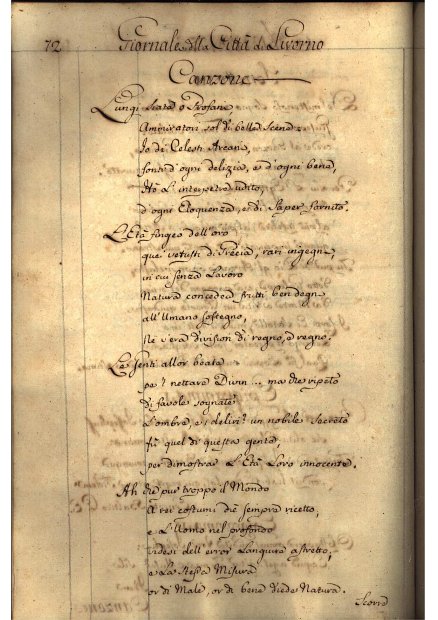 72 Giornale della Città di Livorno
Canzone
Lungi state o Profani
Ammiratori sol di bella Scena
Io di Celesti Arcani
fonti d'ogni delizia, e d'ogni bene,
Hò l'interpetre udito,
d'ogni Eloquenza, e di Saper fornito.
L'Età fingeo dell'oro
que vetusti di Grecia, rari ingegni,
in cui senza Lavoro
Natura concedea frutti ben degni
all'Umano sostegno,
Nè v'era division di regno, a regno.
Le Genti allor beate
pe 'l nettare ... ma che
di favole sognate
L'ombre, e i deliri? un nobile Secreto
fù quel di questa gente
per dimostrar L'Età Loro innocente.
Ah che pur troppo il Mondo
A rei costumi diè sempre ricetto,
e L'Uomo nel profondo
videsi dell'error Languire astretto,
e La Stessa Misura
or di Male, or di bene diede Natura.